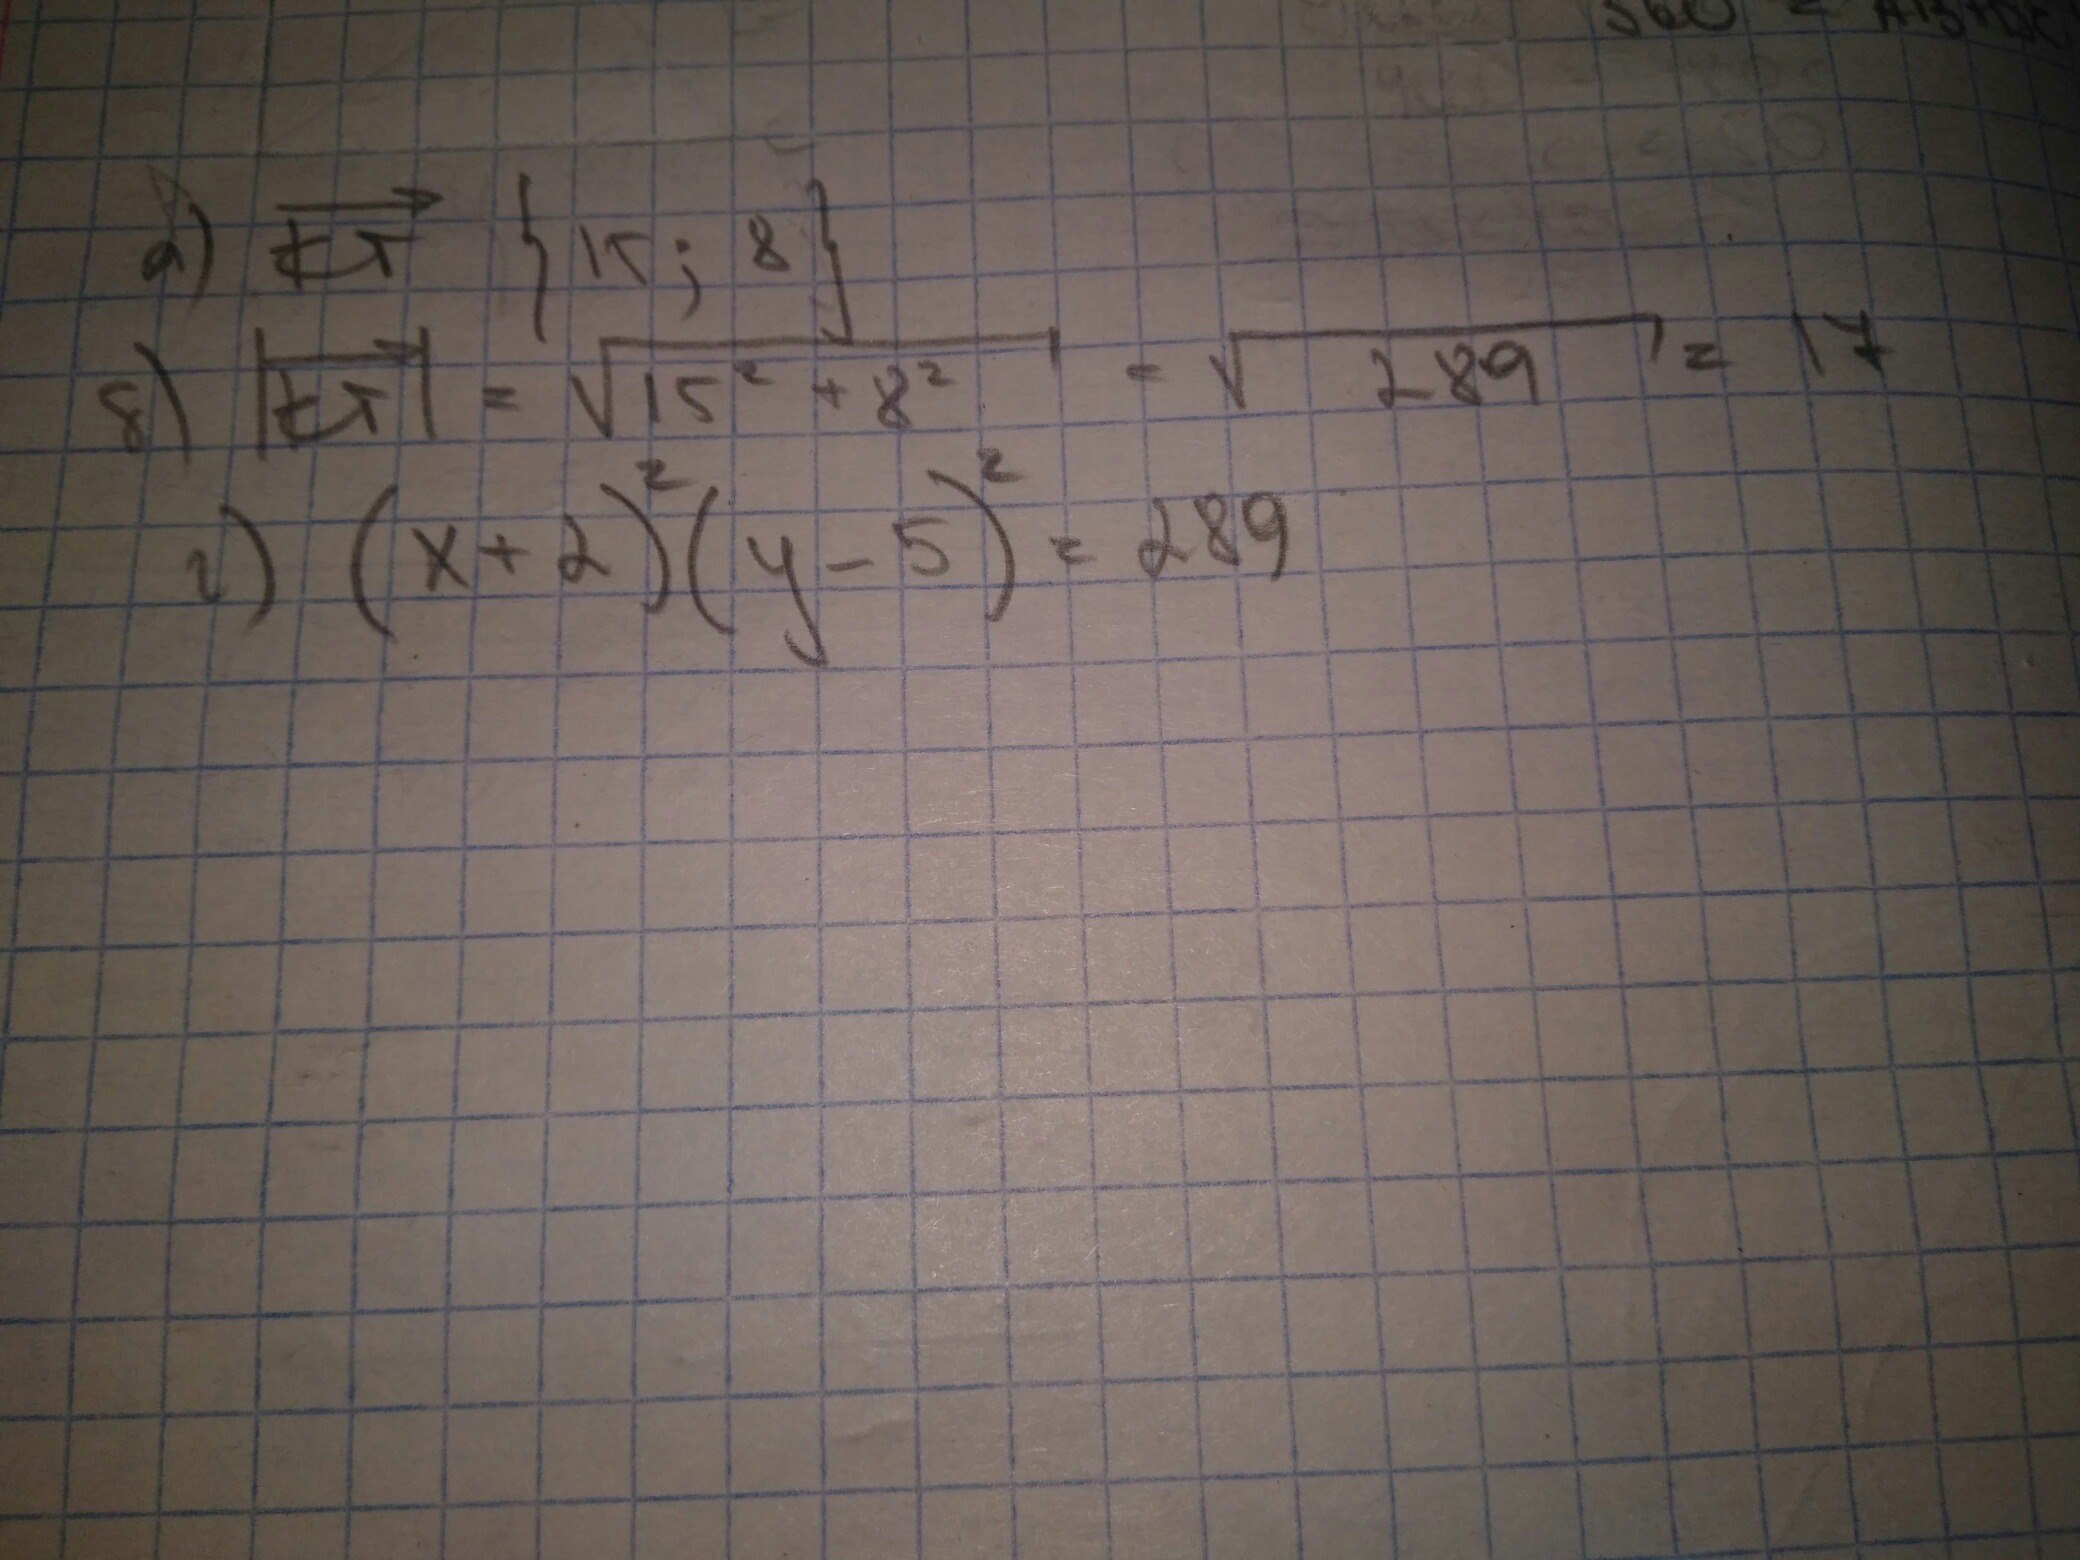 560 =
а) ET {15; 8}
б) |ET| = √15² + 8² = √289 = 17
г) (x+2)²(y-5)² = 289